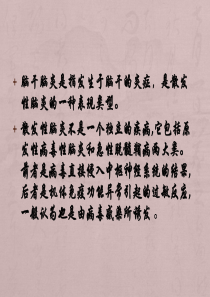 脑干脑炎是指发生于脑干的炎症，是散发
性脑炎的一种表现类型。
散发性脑炎不是一个独立的疾病，它包括原
发性病毒性脑炎和急性脱髓鞘病两大类。
前者是病毒直接侵入中枢神经系统的结果，
后者是机体免疫功能异常引起的过敏反应，
一般认为也是由病毒感染所诱发。